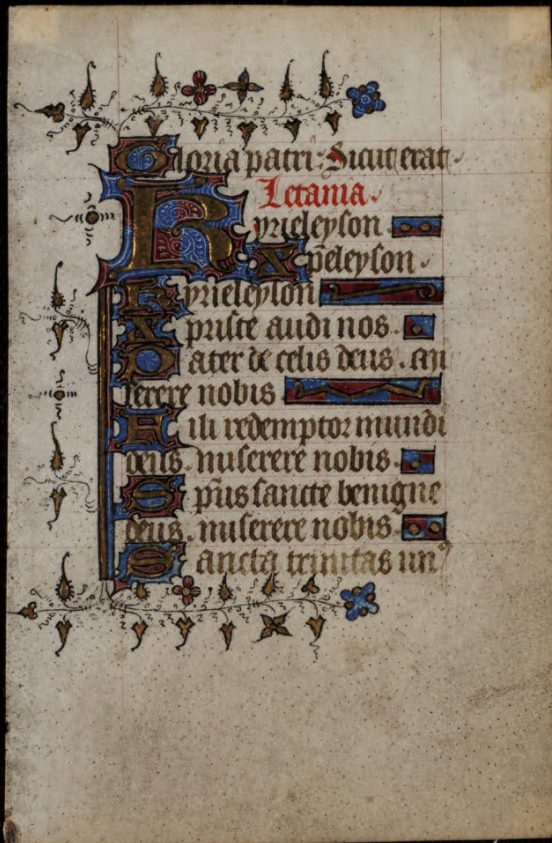 Gloria patri: Sicut erat.
Letania.
Kyrieleyson
Xp̄eleyson.
Kyrieleyson
Xpriste audi nos.
Pater de celis deus. mi
serere nobis
Fili redemptor mundi
deus. miserere nobis.
Sp̄us sancte benigne
deus. miserere nobis.
Sancta trinitas unꝰ